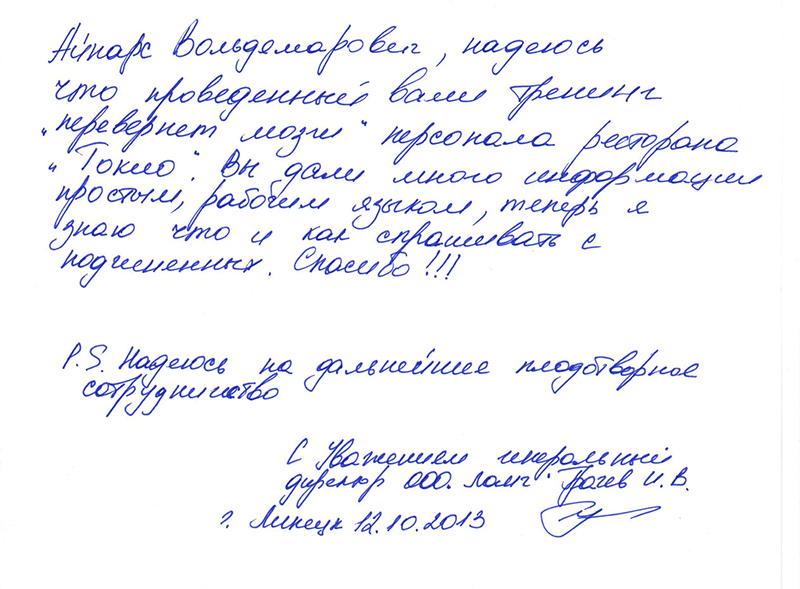 Айнарс Вольдемарович, надеюсь
что проведенный вами тренинг
„перевернет мозги" персонала ресторана
„Токио". Вы дали много информации
простым, рабочим языком, теперь я
знаю что и как спрашивать с
подчиненных. Спасибо!!!
P.S. Надеюсь на дальнейшее плодотворное
сотрудничество
С Уважением генеральный
директор ООО И.В.
г. Липецк 12.10.2013